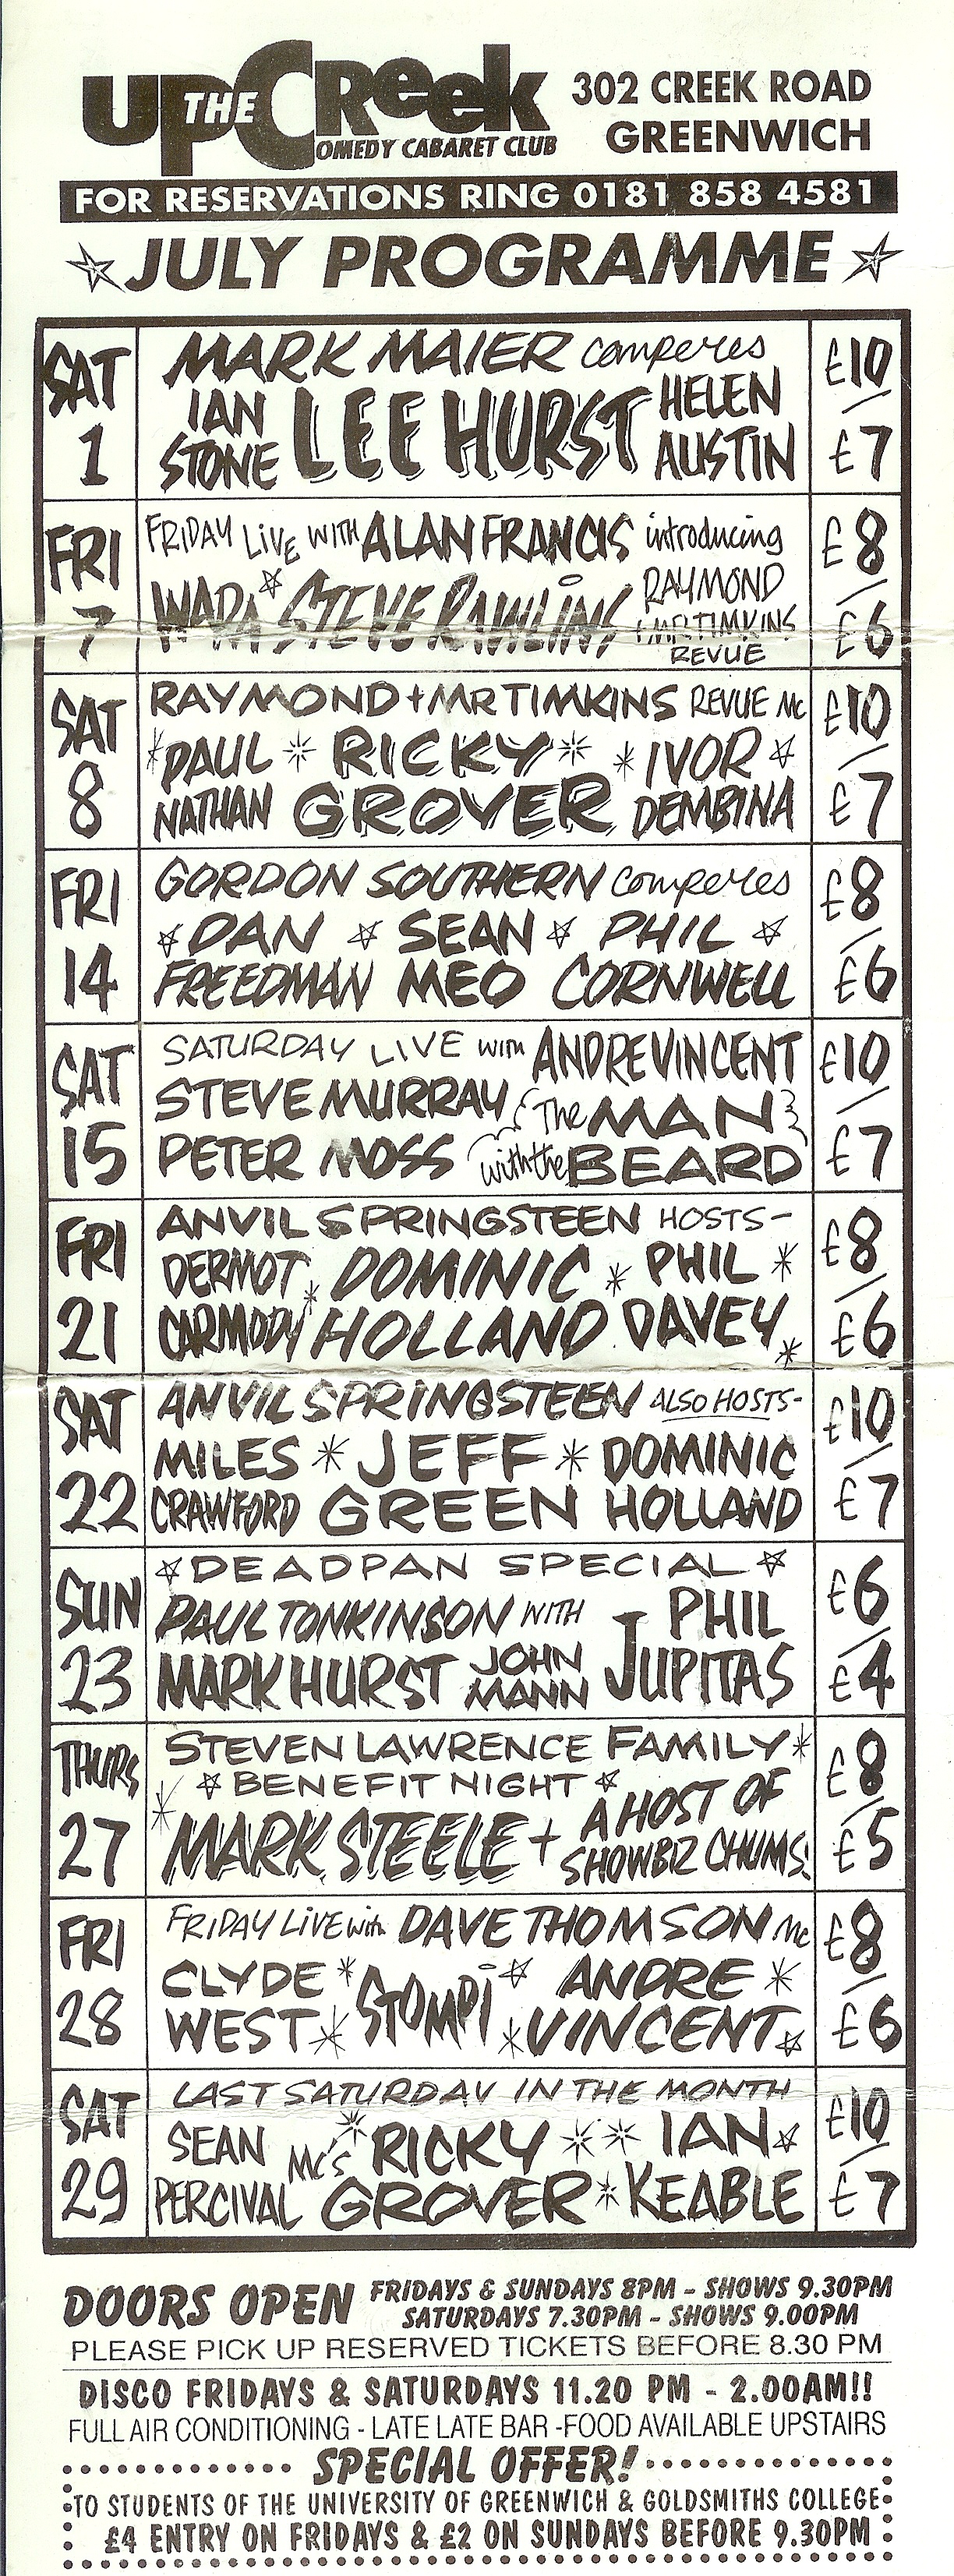 UP THE CREEK
COMEDY CABARET CLUB
302 CREEK ROAD
GREENWICH
FOR RESERVATIONS RING 0181 858 4581
JULY PROGRAMME
SAT 1
MARK MAIER comperes
IAN STONE LEE HURST HELEN AUSTIN
£10/£7
FRI 7
FRIDAY LIVE WITH ALAN FRANCIS introducing
STEVE RAWLINS RAYMOND + MR TIMKINS REVUE
£8/£6
SAT 8
RAYMOND + MR TIMKINS REVUE MC
PAUL NATHAN RICKY GROVER IVOR DEMBINA
£10/£7
FRI 14
GORDON SOUTHERN comperes
DAN FREEDMAN SEAN MEO PHIL CORNWELL
£8/£6
SAT 15
SATURDAY LIVE with ANDRE VINCENT
STEVE MURRAY The MAN
PETER MOSS with the BEARD
£10/£7
FRI 21
ANVIL SPRINGSTEEN HOSTS-
DERMOT CARMODY DOMINIC HOLLAND PHIL DAVEY
£8/£6
SAT 22
ANVIL SPRINGSTEEN ALSO HOSTS-
MILES CRAWFORD JEFF GREEN DOMINIC HOLLAND
£10/£7
SUN 23
DEADPAN SPECIAL
PAUL TONKINSON WITH
MARK HURST JOHN MANN PHIL JUPITAS
£6/£4
THURS 27
STEVEN LAWRENCE FAMILY
BENEFIT NIGHT
MARK STEELE + A HOST OF SHOWBIZ CHUMS!
£8/£5
FRI 28
FRIDAY LIVE with DAVE THOMSON MC
CLYDE WEST STOMPI ANDRE VINCENT
£8/£6
SAT 29
LAST SATURDAY IN THE MONTH
SEAN PERCIVAL MC's RICKY GROVER IAN KEABLE
£10/£7
DOORS OPEN FRIDAYS & SUNDAYS 8PM - SHOWS 9.30PM
SATURDAYS 7.30PM - SHOWS 9.00PM
PLEASE PICK UP RESERVED TICKETS BEFORE 8.30 PM
DISCO FRIDAYS & SATURDAYS 11.20 PM - 2.00AM!!
FULL AIR CONDITIONING - LATE LATE BAR -FOOD AVAILABLE UPSTAIRS
SPECIAL OFFER!
TO STUDENTS OF THE UNIVERSITY OF GREENWICH & GOLDSMITHS COLLEGE
£4 ENTRY ON FRIDAYS & £2 ON SUNDAYS BEFORE 9.30PM